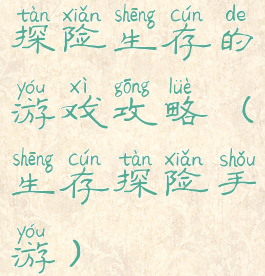 tàn xiǎn shēng cún de
探险生存的
yóu xì gōng lüè
游戏攻略（
shēng cún tàn xiǎn shǒu
生存探险手
yóu
游）